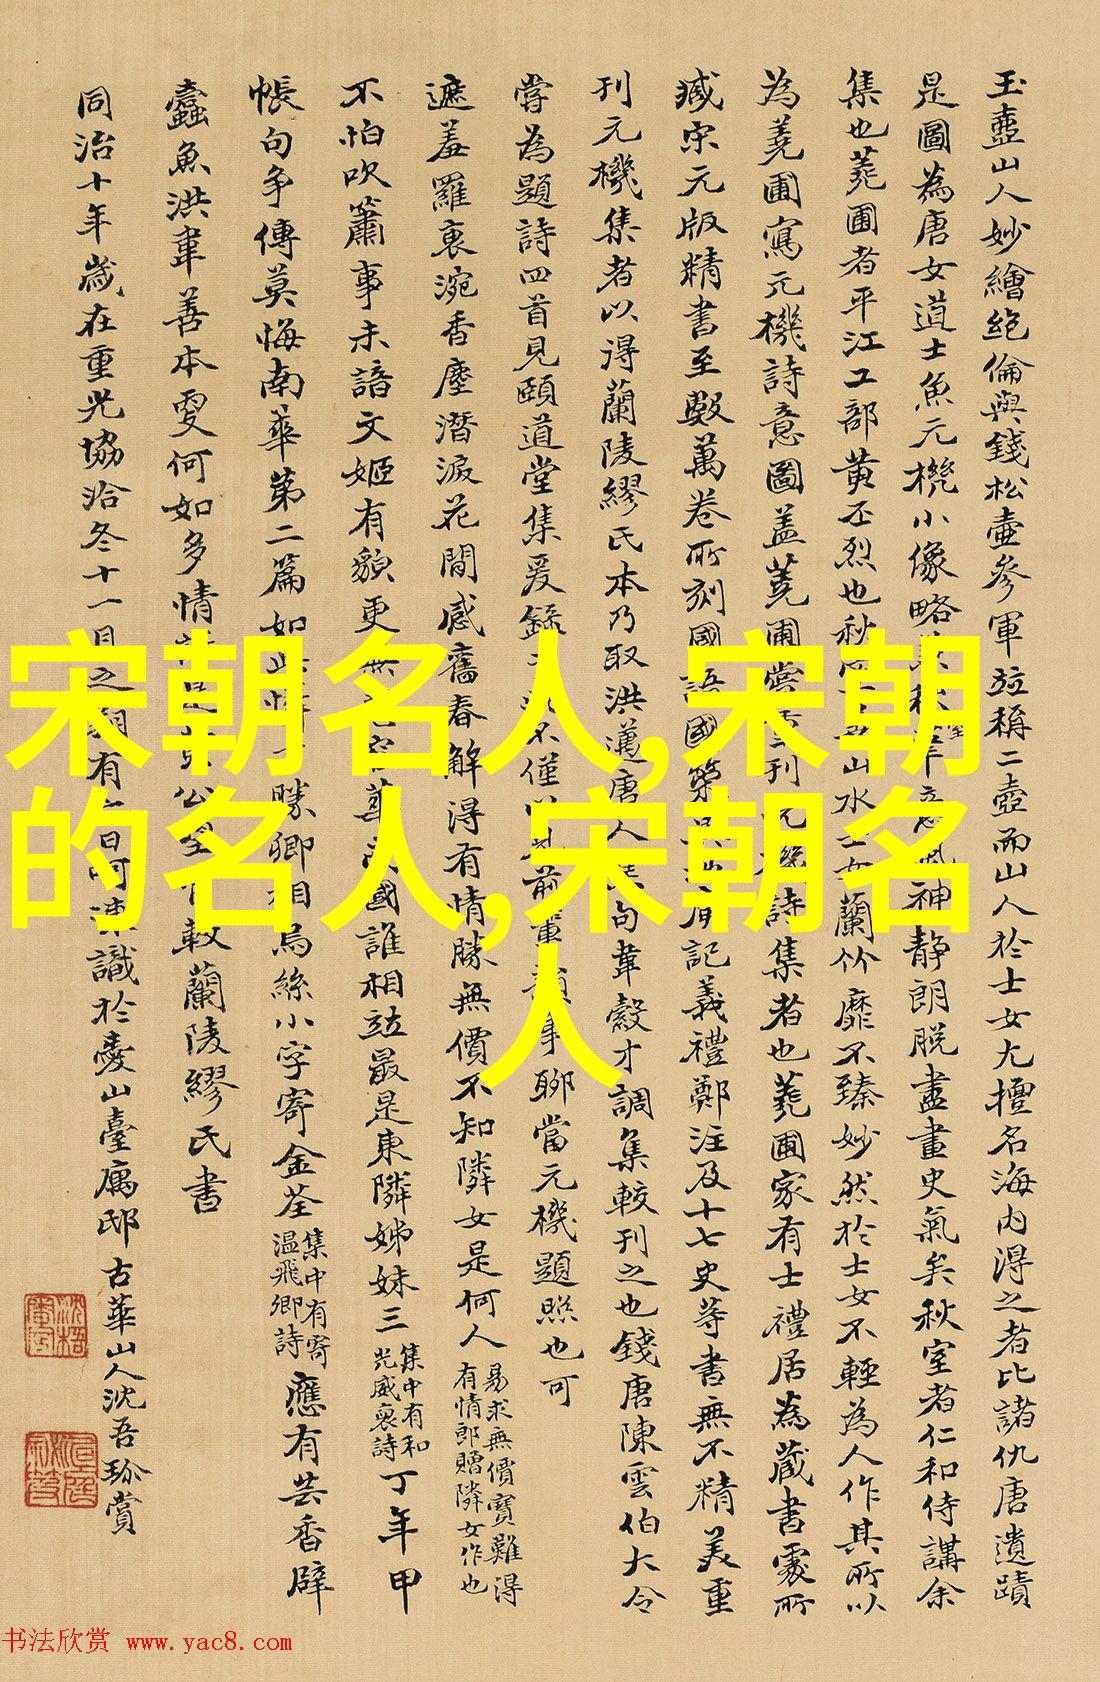 玉壺山人妙繪絕倫與錢松壺參軍竝稱二壺而山人於士女尤擅名海內得之者比諸仇唐遺蹟
是圖為唐女道士魚元機小像略秋室丰神靜朗脫盡畫史氣矣秋室者仁和侍講余
集也蕘圃者平江工部黃丕烈也秋山水士女蘭竹靡不臻妙然於士女不輕為人作其所以
為蕘圃寫元機詩意圖蓋蕘圃嘗重刊元機詩集者也蕘圃家有士禮居為藏書處所
臧宋元版精書至數萬卷所刻國語國策記義禮鄭注及十七史等書無不精美重
刊元機集者以得蘭陵繆氏本乃取洪邁唐人句韋縠才調集較刊之也錢唐陳雲伯大令
嘗為題詩四首見頤道堂集爰錄不僅以前輩韻事聊當元機題照也可
遮羞羅裏涴香塵潛淚花間感舊春解得有情勝無價不知隣女是何人 易求無價寶難得有情郎贈隣女作也
不怕吹簫事未諳文姬有貌更無國誰相竝最是東隣姊妹三 集中有和光威裒詩 丁年甲
帳句爭傳莫悔南華第二篇如此勝卿相烏絲小字寄金荃 集中有寄溫飛卿詩 應有芸香辟
蠹魚洪韋善本更何如多情公較蘭陵繆氏書
同治十年歲在重光協洽冬十一月之有日識於臺寓邸古華山人沈吾珍賞
宋朝名人,宋朝
的名人,宋朝名
人
书法欣赏 www.yac8.com